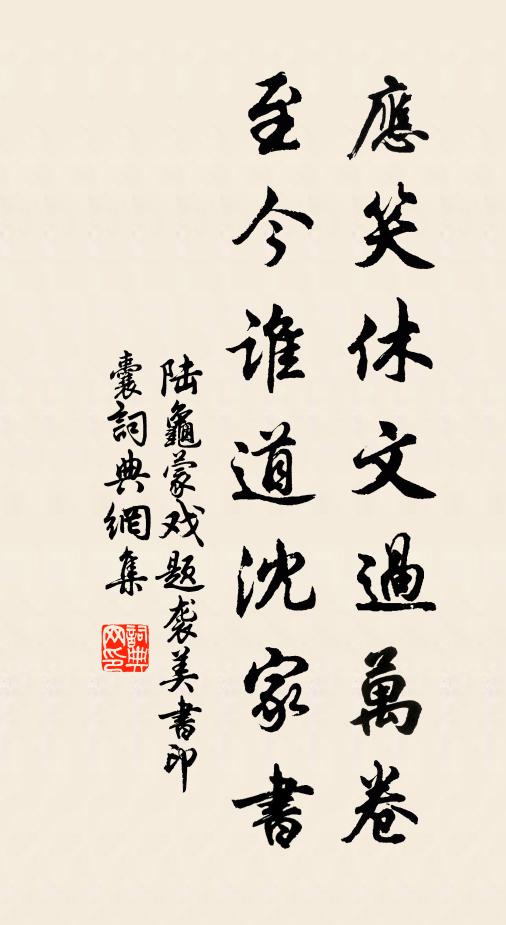 應笑休文過萬卷
至今誰道沈家書
陆龜蒙戏题袭美書印
囊詞典網集
詞典
网印